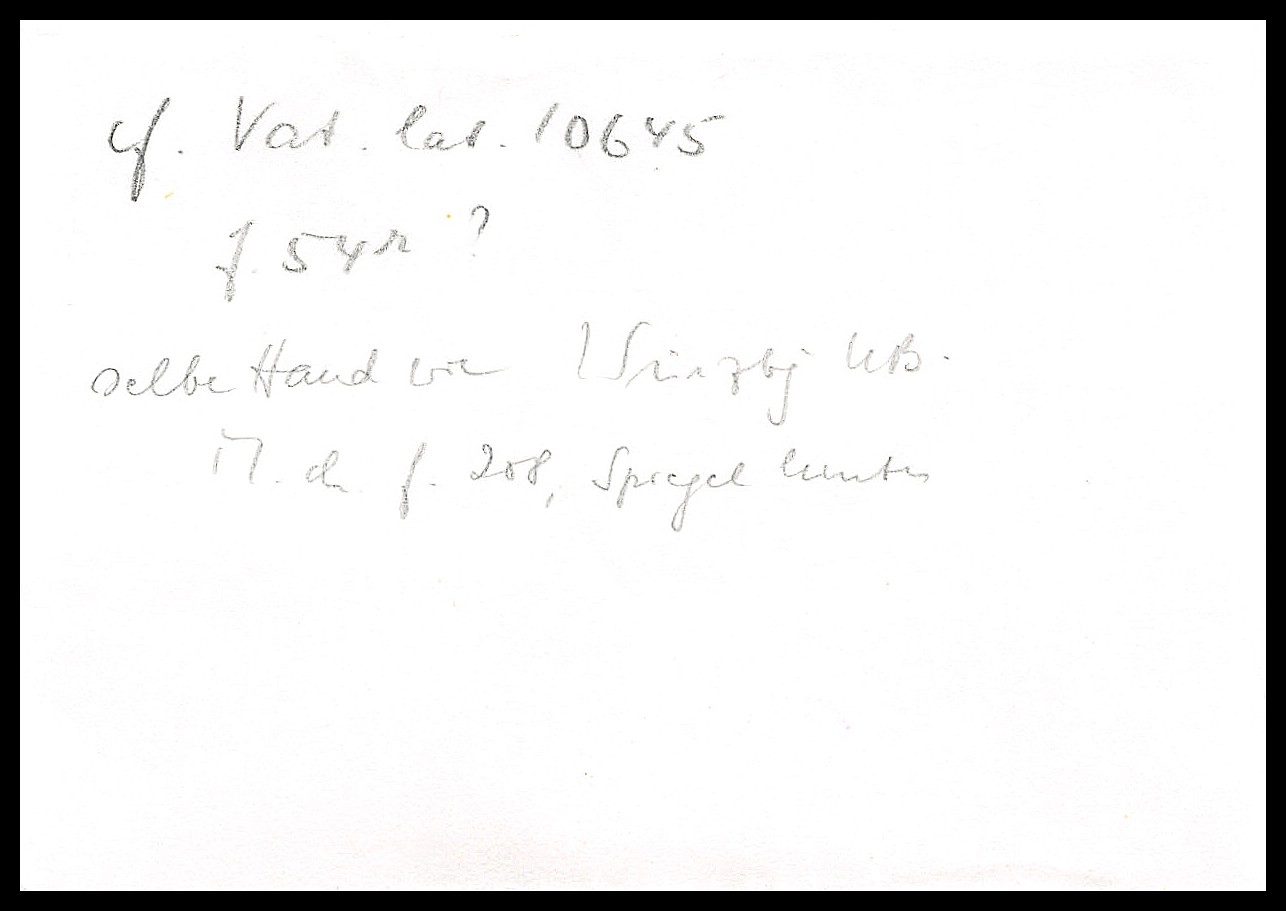 cf. Vat. lat. 10645
f. 54r ?
selbe Hand wie Würzbg UB.
M. ch. f. 208, Spiegel hinten